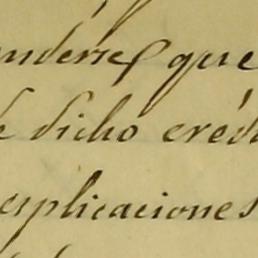 enderse que
de dicho crédi
esplicaciones